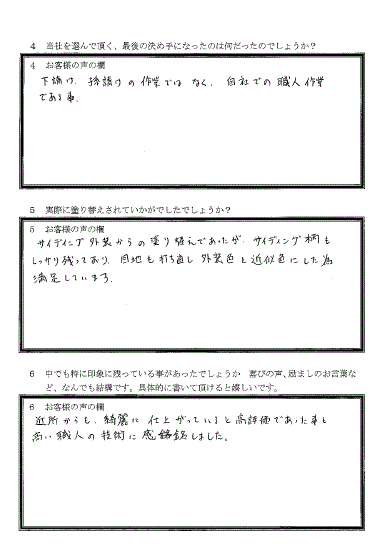 4　当社を選んで頂く、最後の決め手になったのは何だったのでしょうか？
4　お客様の声の欄
下請け、孫請けの作業ではなく、自社での職人作業
である事。
5　実際に塗り替えされていかがでしたでしょうか？
5　お客様の声の欄
サイディング外装からの塗り替えであったが、サイディング柄も
しっかり残っており、目地も打ち直し外装色と近似色にした為
満足しています。
6　中でも特に印象に残っている事があったでしょうか　喜びの声、励ましのお言葉な
ど、なんでも結構です。具体的に書いて頂けると嬉しいです。
6　お客様の声の欄
近所からも、綺麗に仕上がっていると高評価であった事も
高い職人の技術に感銘しました。